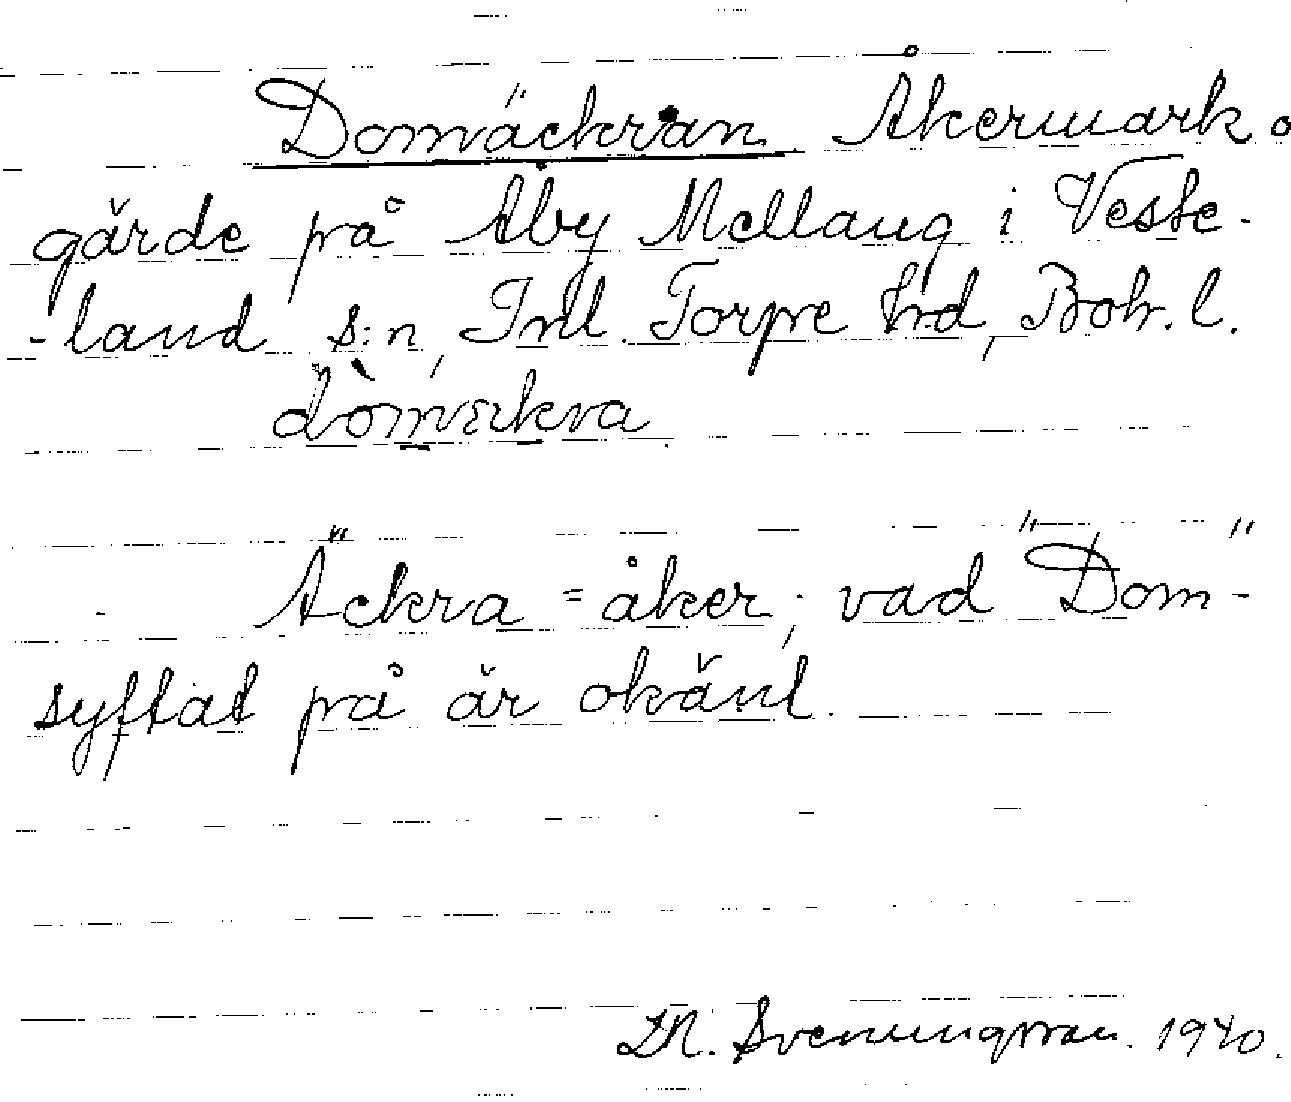 Domäckran Åkermark o
gärde på Åby Mellang i Veste-
-land s:n, Inl. Torpe hd, Boh. l.
Äckra = åker; vad "Dom-"
syftat på är okänt.
Svenungsson. 1940.